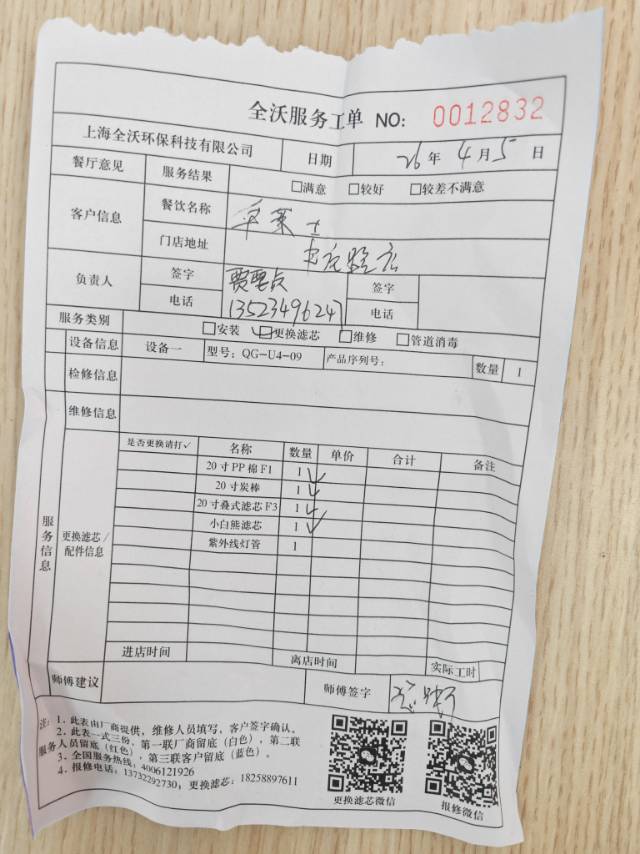 全沃服务工单 NO: 0012832
上海全沃环保科技有限公司 日期 26年 4月 5日
餐厅意见 服务结果 □满意 □较好 □较差不满意
客户信息 餐饮名称
门店地址
负责人 签字 签字
电话 13523496247 电话
服务类别 □安装 □更换滤芯 □维修 □管道消毒
设备信息 设备一 型号: QG-U4-09 产品序列号: 数量 1
检修信息
维修信息
服务信息
更换滤芯/配件信息
是否更换请打✓ 名称 数量 单价 合计 备注
20寸PP棉F1 1 ✓
20寸炭棒 1 ✓
20寸叠式滤芯F3 1 ✓
小白熊滤芯 1 ✓
紫外线灯管 1
进店时间 离店时间 实际工时
师傅建议 师傅签字
注: 1、此表由厂商提供, 维修人员填写, 客户签字确认。
2、此表一式三份, 第一联厂商留底(白色), 第二联
服务人员留底(红色), 第三联客户留底(蓝色)。
3、全国服务热线: 4006121926
4、报修电话: 13732292730; 更换滤芯: 18258897611
更换滤芯微信 报修微信